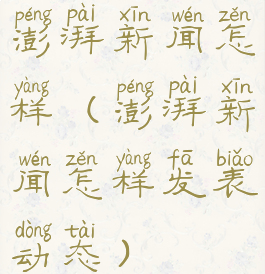 péng pài xīn wén zěn
澎湃新闻怎
yàng péng pài xīn
样（澎湃新
wén zěn yàng fā biǎo
闻怎样发表
dòng tài
动态）